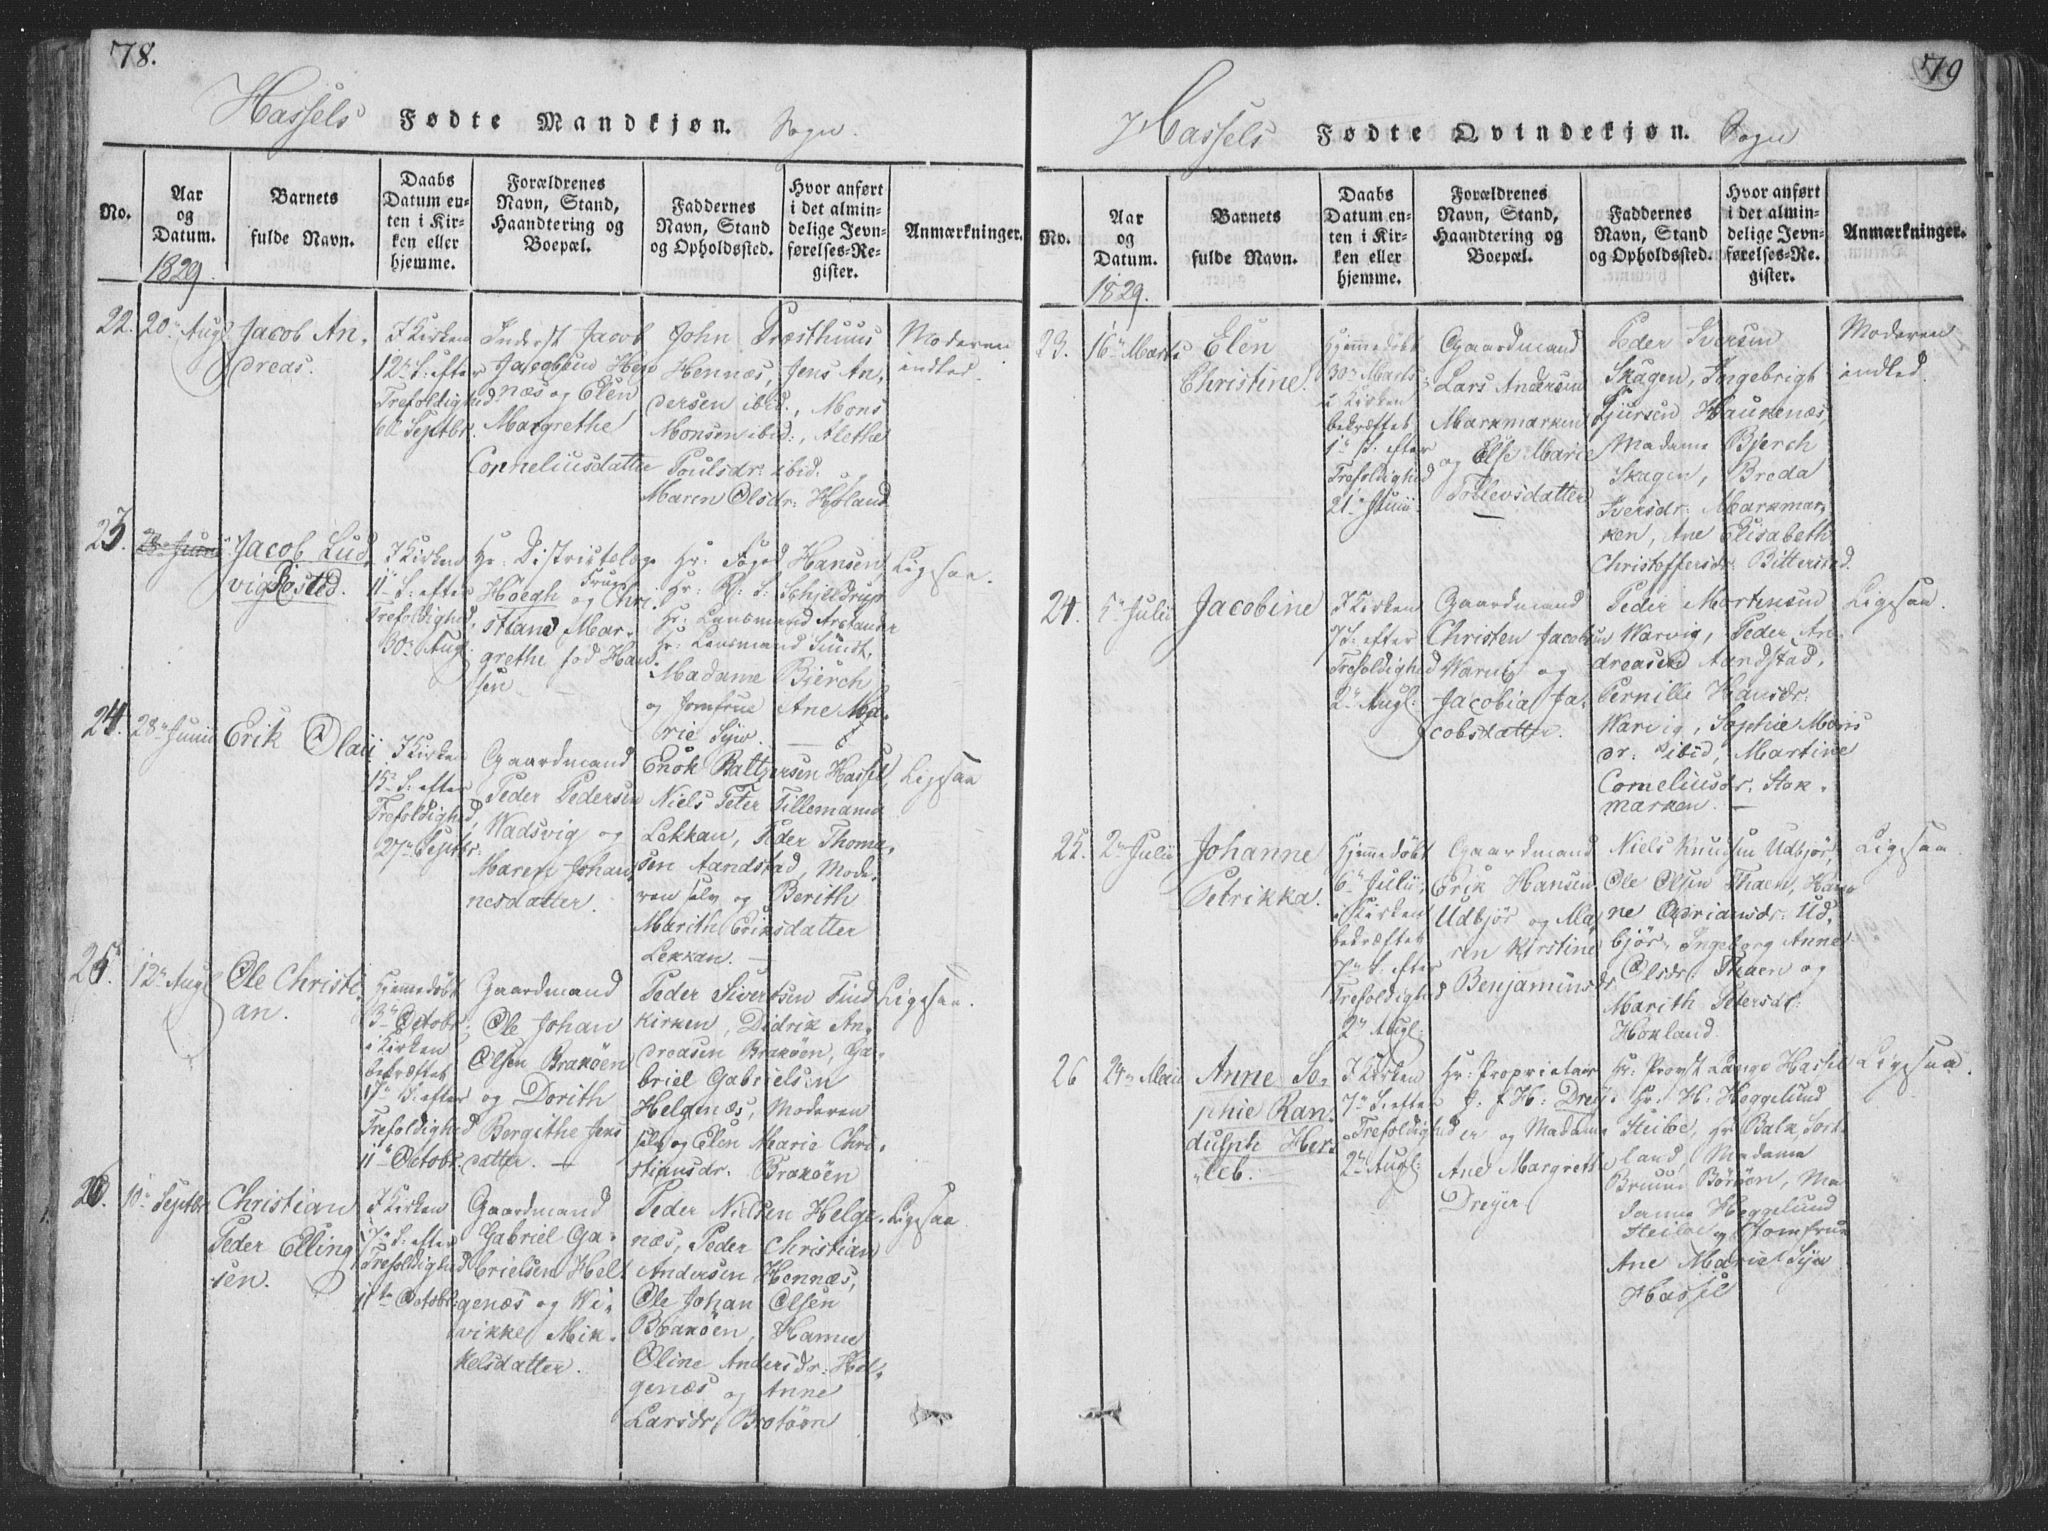 78.
Hassels Fødte Mandkjøn. Sogn.
No.
Aar og Datum.
Barnets fulde Navn.
Daabs Datum enten i Kirken eller hjemme.
Forældrenes Navn, Stand, Haandtering og Boepæl.
Faddernes Navn, Stand og Opholdssted.
Hvor anført i det almindelige Jevnførelses-Register.
Anmærkninger.
1829.
22.
20de Augs
Jacob An-
dreas.
I Kirken
12te S: efter
Trefoldighed
6te Septbr.
Inderst Jacob
Jacobsen Hen
næs og Elen
Margrethe
Corneliusdatter
John Præsthuus
Hennæs, Jens An-
dersen ibid., Mons
Monsen ibid:, Alethe
Poulsdr: ibid.
Maren Olsdr: Hofland
Moderen
indled.
23.
28de Junii
Jacob Lud-
vig Rosted.
I Kirken
11te S: efter
Trefoldighed,
30te Aug.
Hr: Districtslæge
Høegh og Frue Chri-
stiane Mar-
grethe fød Han-
sen
Hr: Foged Hansen
Hr: P: S: Schjeldrup
Hr: Lensmand
Hr: Lensmand
Madame Bierch
og Jomfrue Ane Ma-
rie Sijw.
Ligesaa.
24.
28de Junii
Erik Olaii
I Kirken
15de S: efter
Trefoldighed,
27de Septbr.
Gaardmand
Peder Pedersen
Wadsvig og
Maren Johan-
nesdatter.
Enok Baltzersen Hassel,
Niels Peter Tillemann
Lekkan, Peder Thoma-
sen Aandstad, Mode-
ren selv og Berith
Marith Eriksdatter
Lekkan.
Ligesaa
25.
12te Augs
Ole Christi-
an.
Hjemmedøbt
3de Octobr:
i Kirken
bekræftet
17de S: efter
Trefoldighed
11te Octobr.
Gaardmand
Ole Johan
Olsen Brakøen
og Dorith
Bergithe Jens
datter.
Peder Sivertsen Find
kirken, Didrik An-
dreasen Brakøen, Ga-
briel Gabrielsen
Helgenæs, Moderen
selv og Elen Marie Chri-
stiansdr: Brakøen
Ligesaa.
26.
10de Septbr.
Christian
Peder Elling
sen.
I Kirken
17de S: efter
Trefoldighed
11te Octobr.
Gaardmand
Gabriel Ga-
brielsen Hel-
genæs og Wi-
vikke Mik-
kelsdatter.
Peder Nielsen Helge-
næs, Peder Christian
Andersen Hennæs,
Ole Johan Olsen
Brakøen, Hanna
Oline Andersdr: Hel-
genæs og Anne
Larsdr. Brotøen
Ligesaa
79
Hassels Fødte Qvindekjøn. Sogn
No.
Aar og Datum.
Barnets fulde Navn.
Daabs Datum enten i Kirken eller hjemme.
Forældrenes Navn, Stand, Haandtering og Boepæl.
Faddernes Navn, Stand og Opholdssted.
Hvor anført i det almindelige Jevnførelses-Register.
Anmærkninger.
1829.
23.
16de Marts
Elen
Christine.
Hjemmedøbt
30te Marts
i Kirken
bekræftet
1ste S: efter
Trefoldighed
21de Junii.
Gaardmand
Lars Andersen
Markmarken
og Else Marie
Tollevsdatter
Peder Iversen
Skagen, Ingebrigt
Sjursen Haukenæs,
Madame Bjerch
Skagen, Breda
Iversdr: Markmar-
ken, Ane Elisabeth
Christoffersdr: Bitterstad.
Moderen
indled.
24.
5te Julii
Jacobine
I Kirken
7de S: efter
Trefoldighed
2den Augs:
Gaardmand
Christen Jacobsen
Warvig og
Jacobia Ja-
cobsdatter.
Peder Mortensen
Warvig, Peder An-
dreasen Aandstad,
Pernille Hansdr:
Warvig, Sophia Moris
dr: ibid, Martine
Corneliusdr. Stok-
marken.
Ligesaa.
25.
2den Julii
Johanne
Petrikka.
Hjemmedøbt
6te Julii,
i Kirken
bekræftet
7de S: efter
Trefoldighed
2den Augs:
Gaardmand
Erik Hansen
Udbjør og Ma-
ren Kirstine
Benjaminsdr
Niels Knudsen Udbjør,
Ole Olsen Thaen, Han-
ne Adriansdr: Ud-
bjør, Ingeborg Anne
Olsdr: Thaen og
Marith Petersdr:
Hokland.
Ligesaa.
26
24de Maii
Anne So-
phie Ran-
dulph Her-
leb.
I Kirken
7de S: efter
Trefoldighed
2den Augs:
Hr: Proprietair
J. H: Drey-
er og Madame
Ane Margrethe
Dreyer
Hr: Provst Lange Hassel
Hr: H: Heggelund
Steiloe, Hr Balk Sort-
land, Madame
Bruun Børøen, Ma-
dame Heggelund
Steiloe og Jomfrue
Ane Marie Sijw
Hassel
Ligesaa.